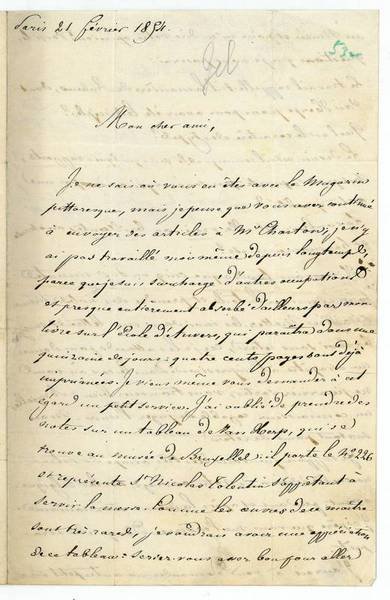 Paris 21 février 1854.
53a
Mon cher ami,
Je ne sais où vous en êtes avec le Magasin
pittoresque, mais je pense que vous avez continué
à envoyer des articles à Mr Charton; je n'y
ai pas travaillé moi même depuis longtemps,
parce que je suis surchargé d'autres occupations
et presque entièrement absorbé d'ailleurs par mon
livre sur l'école d'Anvers, qui paraîtra dans une
quinzaine de jours: quatre cents pages sont déjà
imprimées. Je viens même vous demander à cet
égard un petit service. J'ai oublié de prendre des
notes sur un tableau de Van Herp, qui se
trouve au musée de Bruxelles: il porte le No 226
et représente St Nicolas Tolentin s'apprêtant à
servir la messe. Comme les œuvres de ce maître
sont très rares, je voudrais avoir une appréciation
de ce tableau: seriez-vous assez bon pour aller